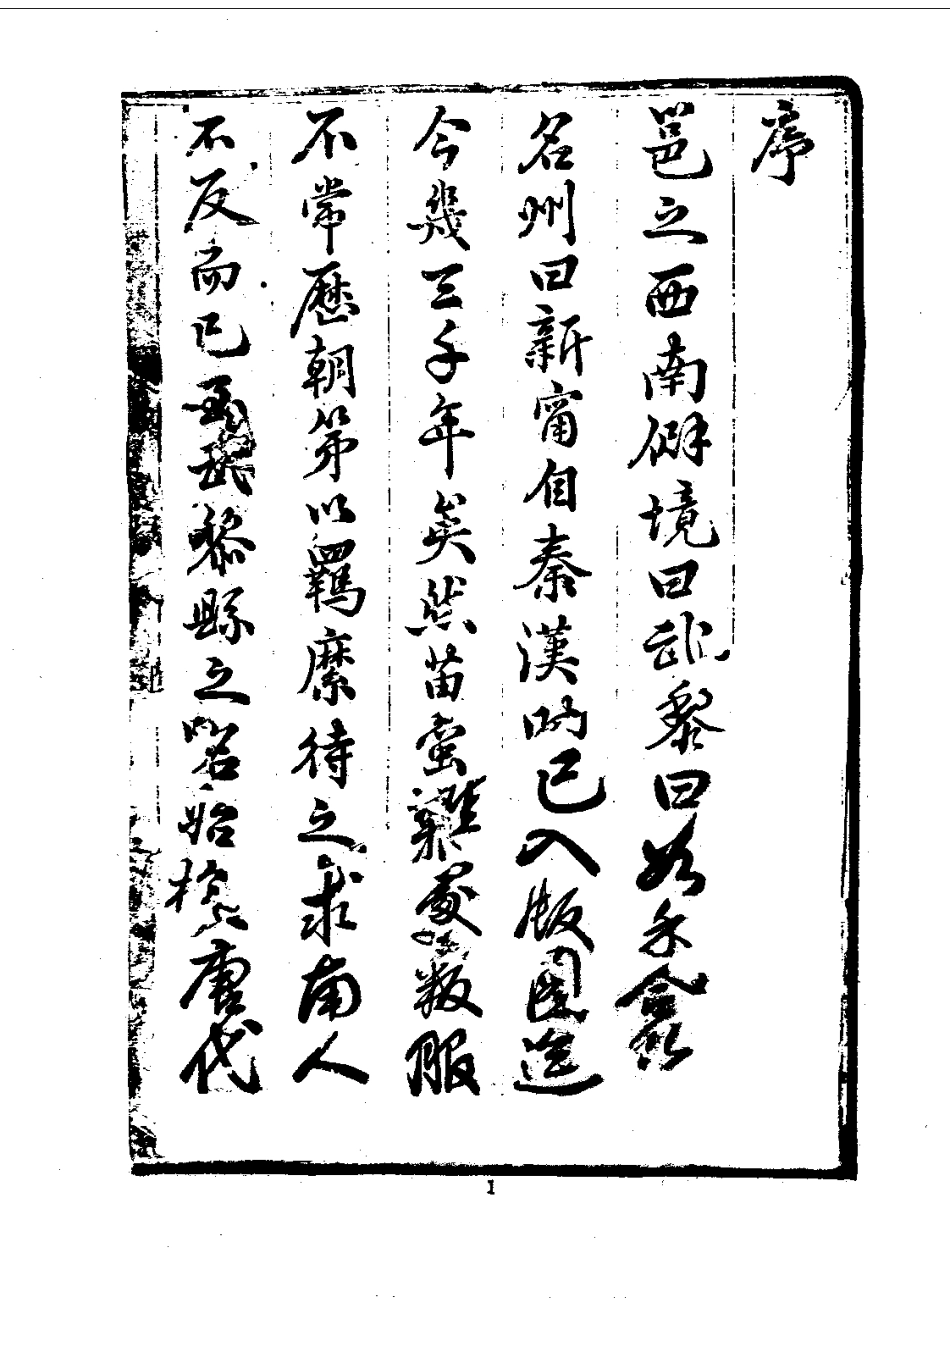 序
邕之西南僻境曰武黎曰如禾
名州曰新甯自秦漢時已入版圖迄
今幾三千年矣然苗蛮雜處叛服
不常歷朝第以羈縻待之求南人
不反而已至武黎縣之名始於唐代
1